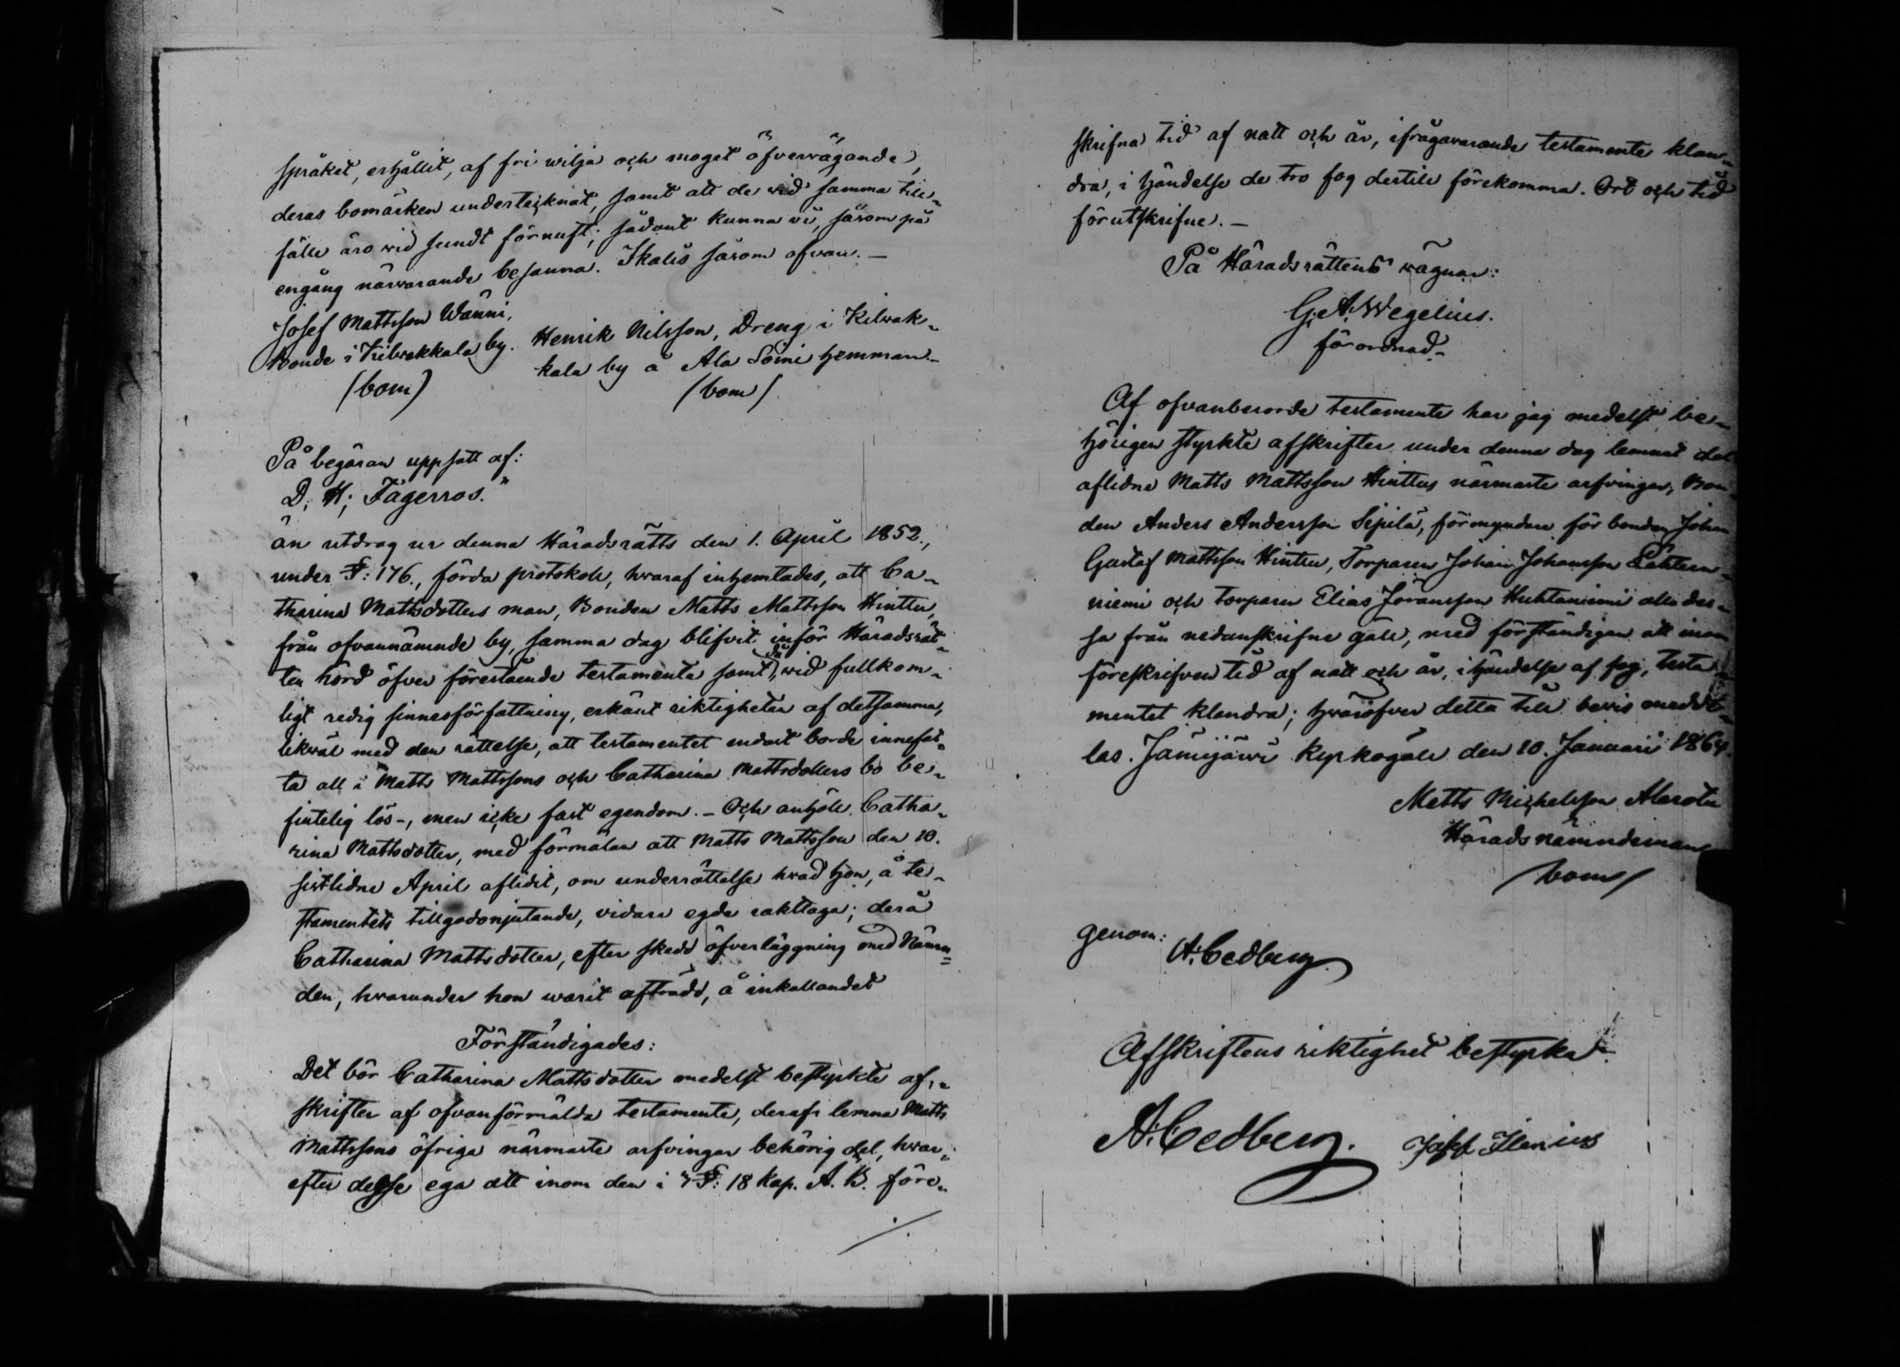 språket, erhållit, af fri wilja och moget öfvervägande,
deras bomärken undertecknat, samt att de vid samma till-
fälle äro vid sundt förnuft; sådant kunna vi, såsom på
engång närvarande besanna. Ikalis såsom ofvan. —
Josef Mattsson Wänni,
Bonde i Kilwakkala by.
(bom)
Henrik Nilsson, Dreng i Kilwak-
kala by å Ala Somi hemman. -
(bom)
På begäran uppsatt af:
D. H; Fagerros."
än utdrag ur denna Häradsrätts den 1. April 1852.,
under §: 176., förda protokoll, hvaraf inhemtades, att Ca-
tharina Mattsdotters man, Bonden Matts Mattsson Hinttu,
från ofvannämnde by, samma dag blifvit inför Häradsrät-
ten hörd öfver förestående testamente samt, då wid fullkom-
ligt redig sinnesförfattning, erkänt riktigheten af detsamma,
likväl med den rättelse, att testamentet endast borde innefat-
ta all i Matts Mattssons och Catharina Mattsdotters bo be-
fintelig lös-, men icke fast egendom. - Och anhöll Catha-
rina Mattsdotter, med förmälan att Matts Mattsson den 10.
sistlidne April aflidit, om underrättelse hvad hon, å te-
stamentets tillgodonjutande, vidare egde iakttaga; derå
Catharina Mattsdotter, efter skedd öfverläggning med Nämn-
den, hvarunder hon warit afträdd, å inkallandet
Förständigades:
Det bör Catharina Mattsdotter medelst bestyrkte af-
skrifter af ofvanförmälda testamente, deraf lemna Matts
Mattssons öfriga närmaste arfvingar behörig del, hvar-
efter desse ega att inom den i 7 §: 18 Kap. Ä. B. före-
./.
skrifna tid af natt och år, ifrågavarande testamente klan-
dra, i händelse de tro fog dertill förekomma. Ort och tid
förutskrifne. -
På Häradsrättens vägnar:
G. A. Wegelius.
förordnad. -
Af ofvanberörde testamente har jag medelst be-
hörigen styrkte afskrifter under denna dag lemnat del
aflidne Matts Mattsson Hinttus närmaste arfvingar, Bon-
den Anders Andersson Sipilä, förmyndare för bonden Johan
Gustaf Mattsson Hinttu, Torparen Johan Johansson
niemi och torparen Elias Jöransson Huhtaniemi alla des-
sa från nedanskrifne gäll, med förständigan att inom
föreskrifven tid af natt och år, i händelse af fog, testa-
mentet klandra; hvaröfver detta till bevis meddel-
las. Jämijärvi kyrkogäll den 10. Januari 1864.
Matts Michelsson Alarotu
Härads nämndeman
(bom)
genom:
A. Cedberg
Afskriftens riktighet bestyrka
A. Cedberg.